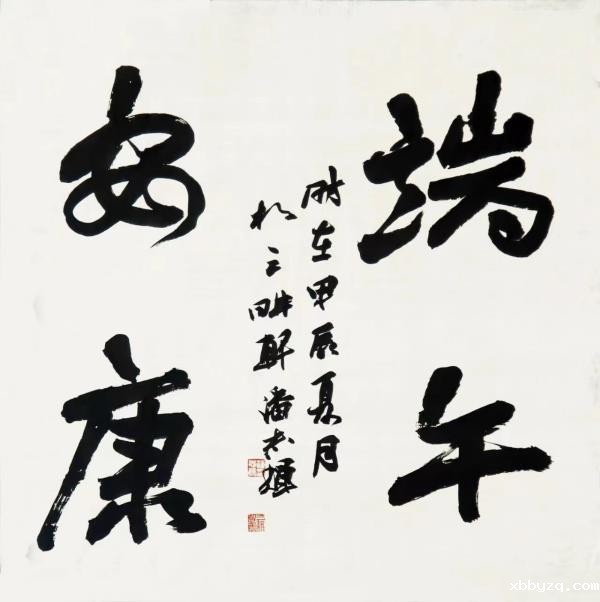 端午
安康
时在甲辰夏月
於三畊轩潘志辉
xbbyzq.com